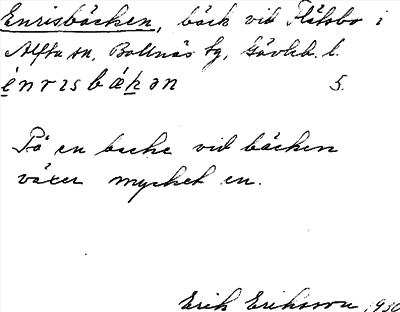 Enrisbäcken, bäck vid Flätsbo i
Alfta sn, Bollnäs tg, Gävleb. l.
énrɪsbækən 5.
På en backe vid bäcken
växer mycket en.
Erik Eriksson, 1930